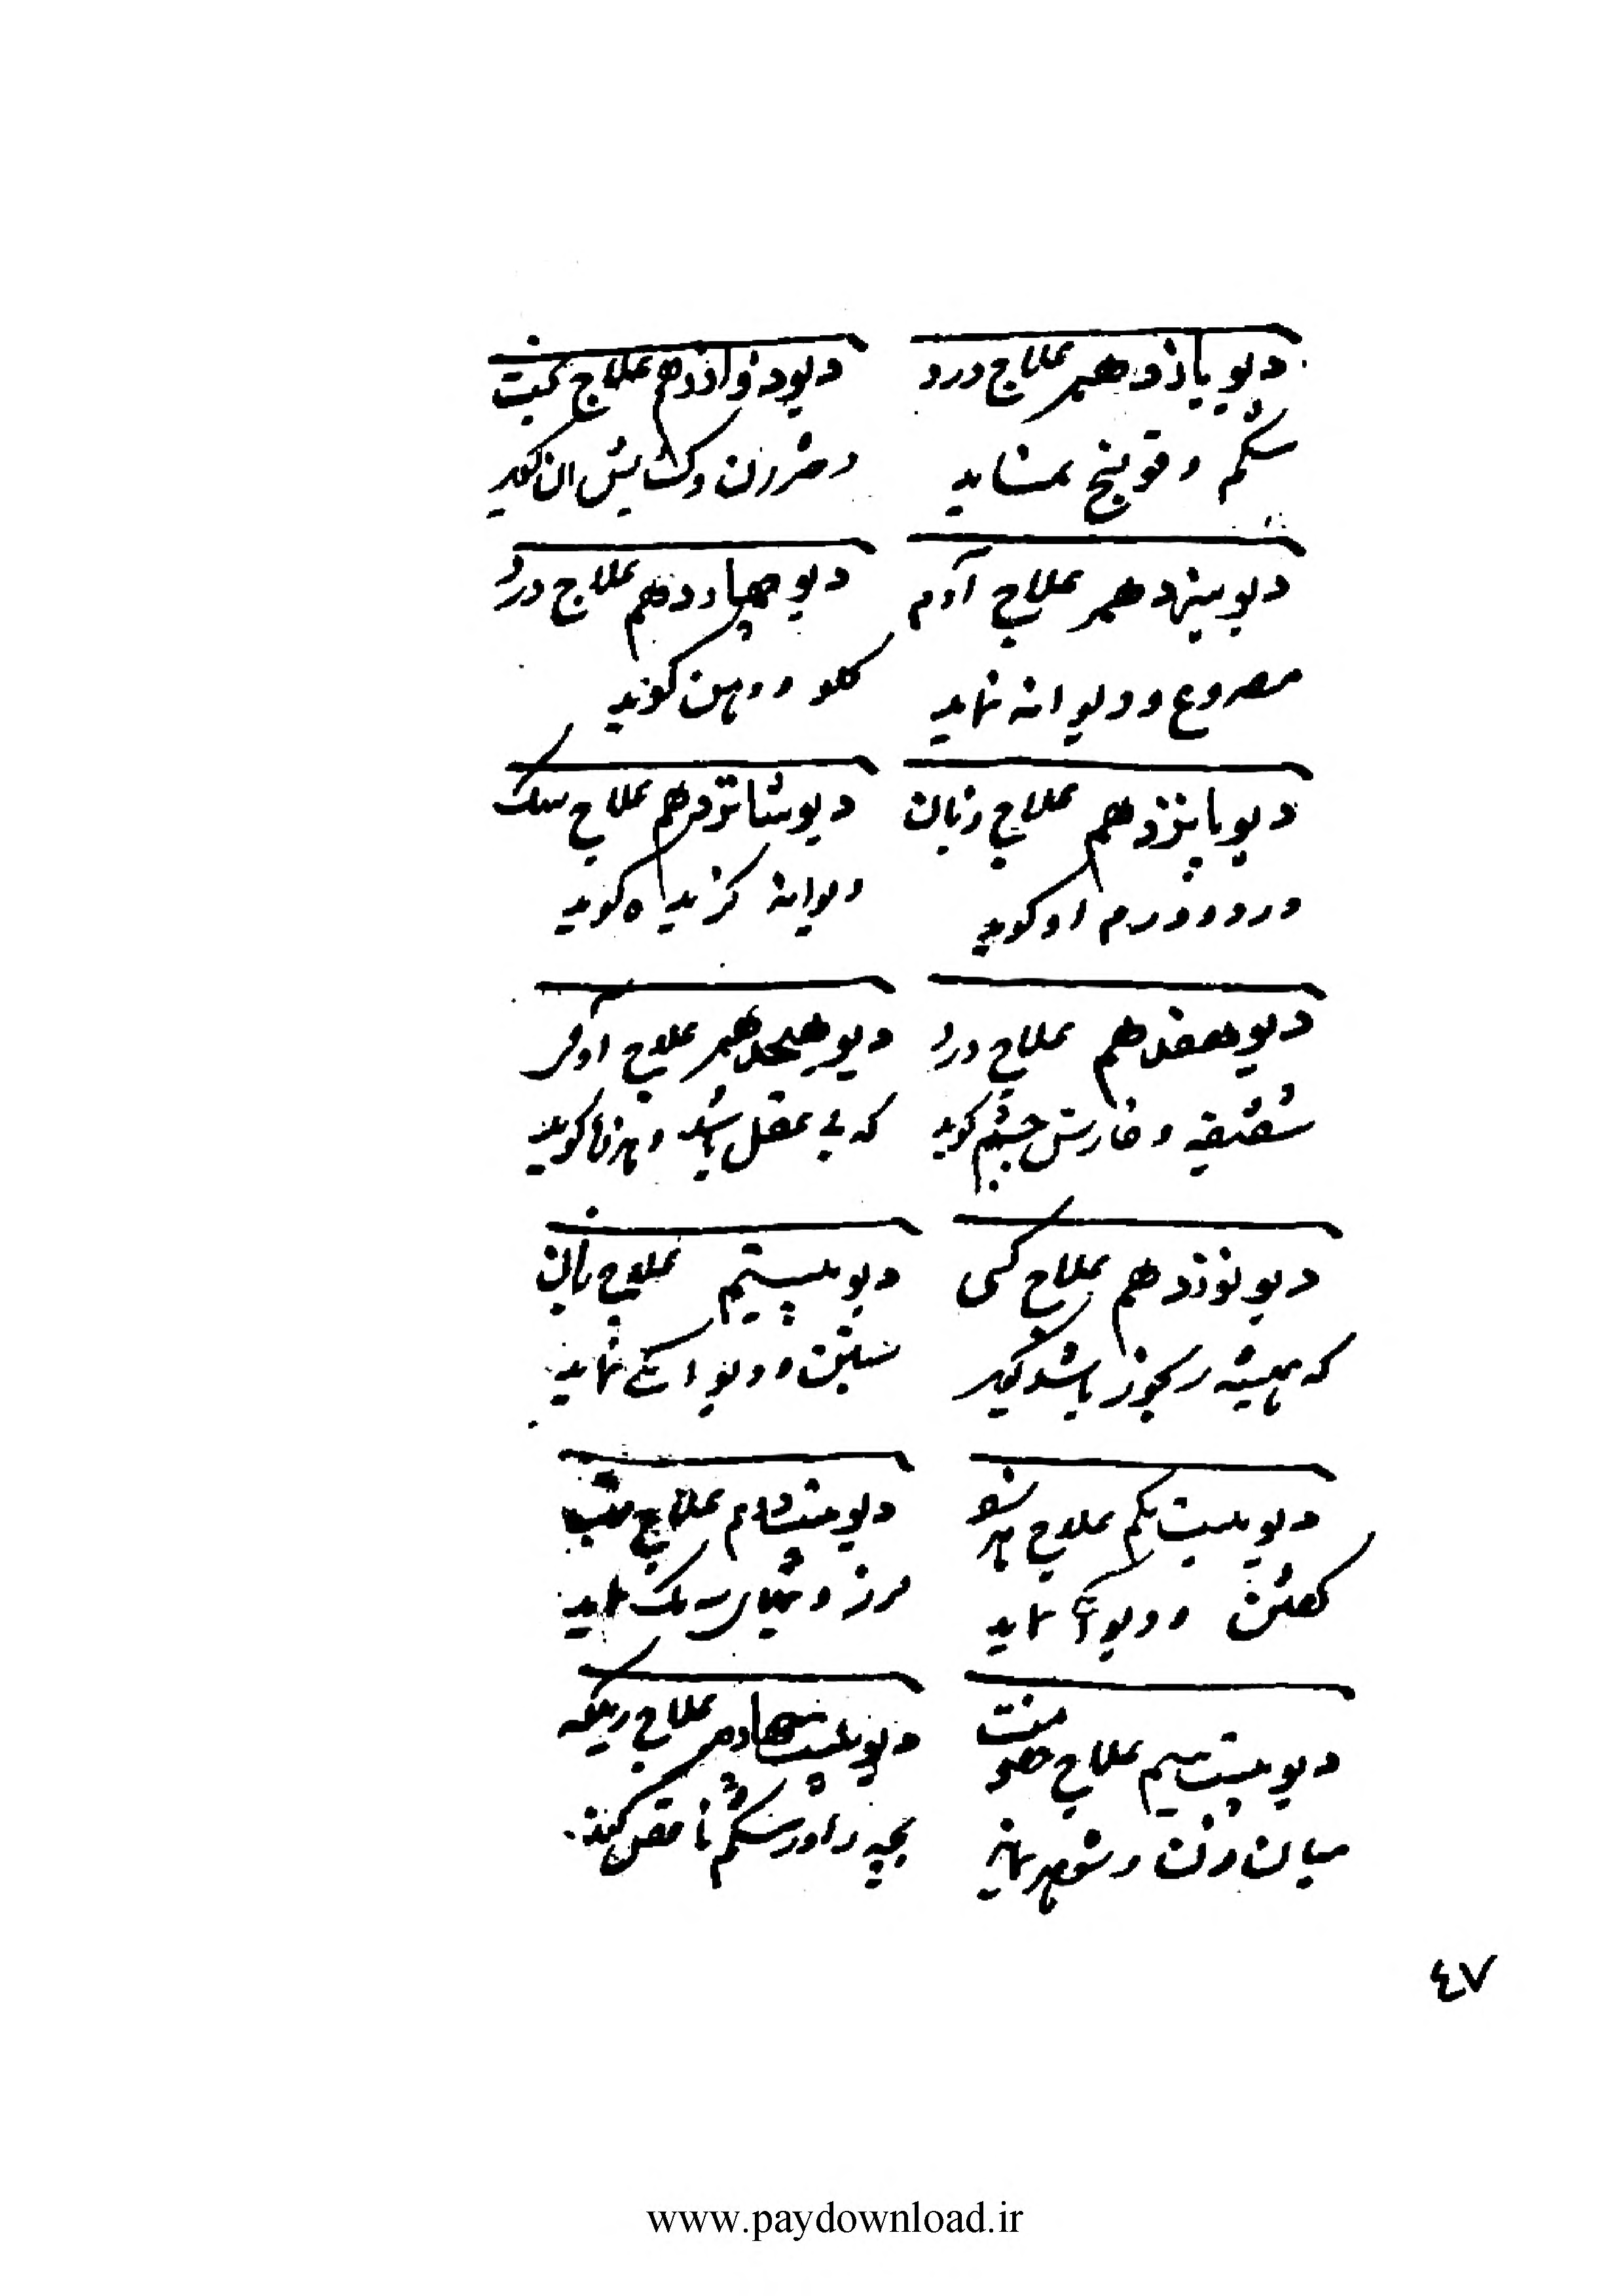 دیو یازدهم علاج درد
شکم و قولنج نماید
دیو دوازدهم علاج بخت
و کشایش ان کوید
دیو سیزدهم علاج آدم
مصروع و دیوانه نماید
دیو چهاردهم علاج درد
کلو و دهن کوید
دیو پانزدهم علاج زنان
درد و ورم او کوید
دیو شانزدهم علاج سک
دیوانه کزیده کوید
دیو هفدهم علاج درد
شقیقه و خارش چشم کوید
دیو هیجدهم علاج
که بی عقل باشد و کوید
دیو نوزدهم علاج کسی
که همیشه رنجور باشد کوید
دیو بیستم علاج
و نماید
دیو بیست یکم علاج
و نماید
دیو علاج تب
لرز و نماید
دیو بیست سیم علاج خصومت
میان زن و شوهر نماید
دیو بیست چهارم علاج
بچه را در شکم ناقص کند
٤٧
www.paydownload.ir